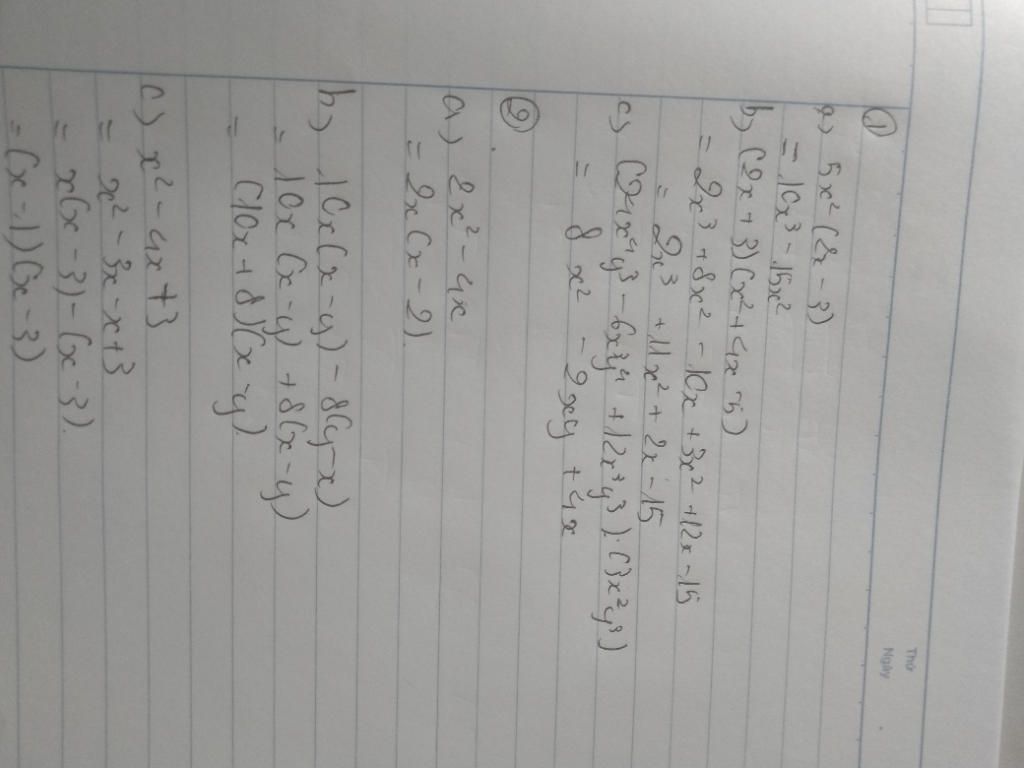 Thứ
Ngày
①
a) 5x² (2x - 3)
= 10x³ - 15x²
b) (2x + 3)(x² + 4x - 5)
= 2x³ + 8x² - 10x + 3x² + 12x - 15
= 2x³ + 11x² + 2x - 15
c) (24x⁴y³ - 6x³y⁴ + 12x³y³) : (3x²y³)
= 8x² - 2xy + 4x
②
a) 2x² - 4x
= 2x(x - 2)
b) 10x(x - y) - 8(y - x)
= 10x(x - y) + 8(x - y)
= (10x + 8)(x - y).
c) x² - 4x + 3
= x² - 3x - x + 3
= x(x - 3) - (x - 3).
= (x - 1)(x - 3)